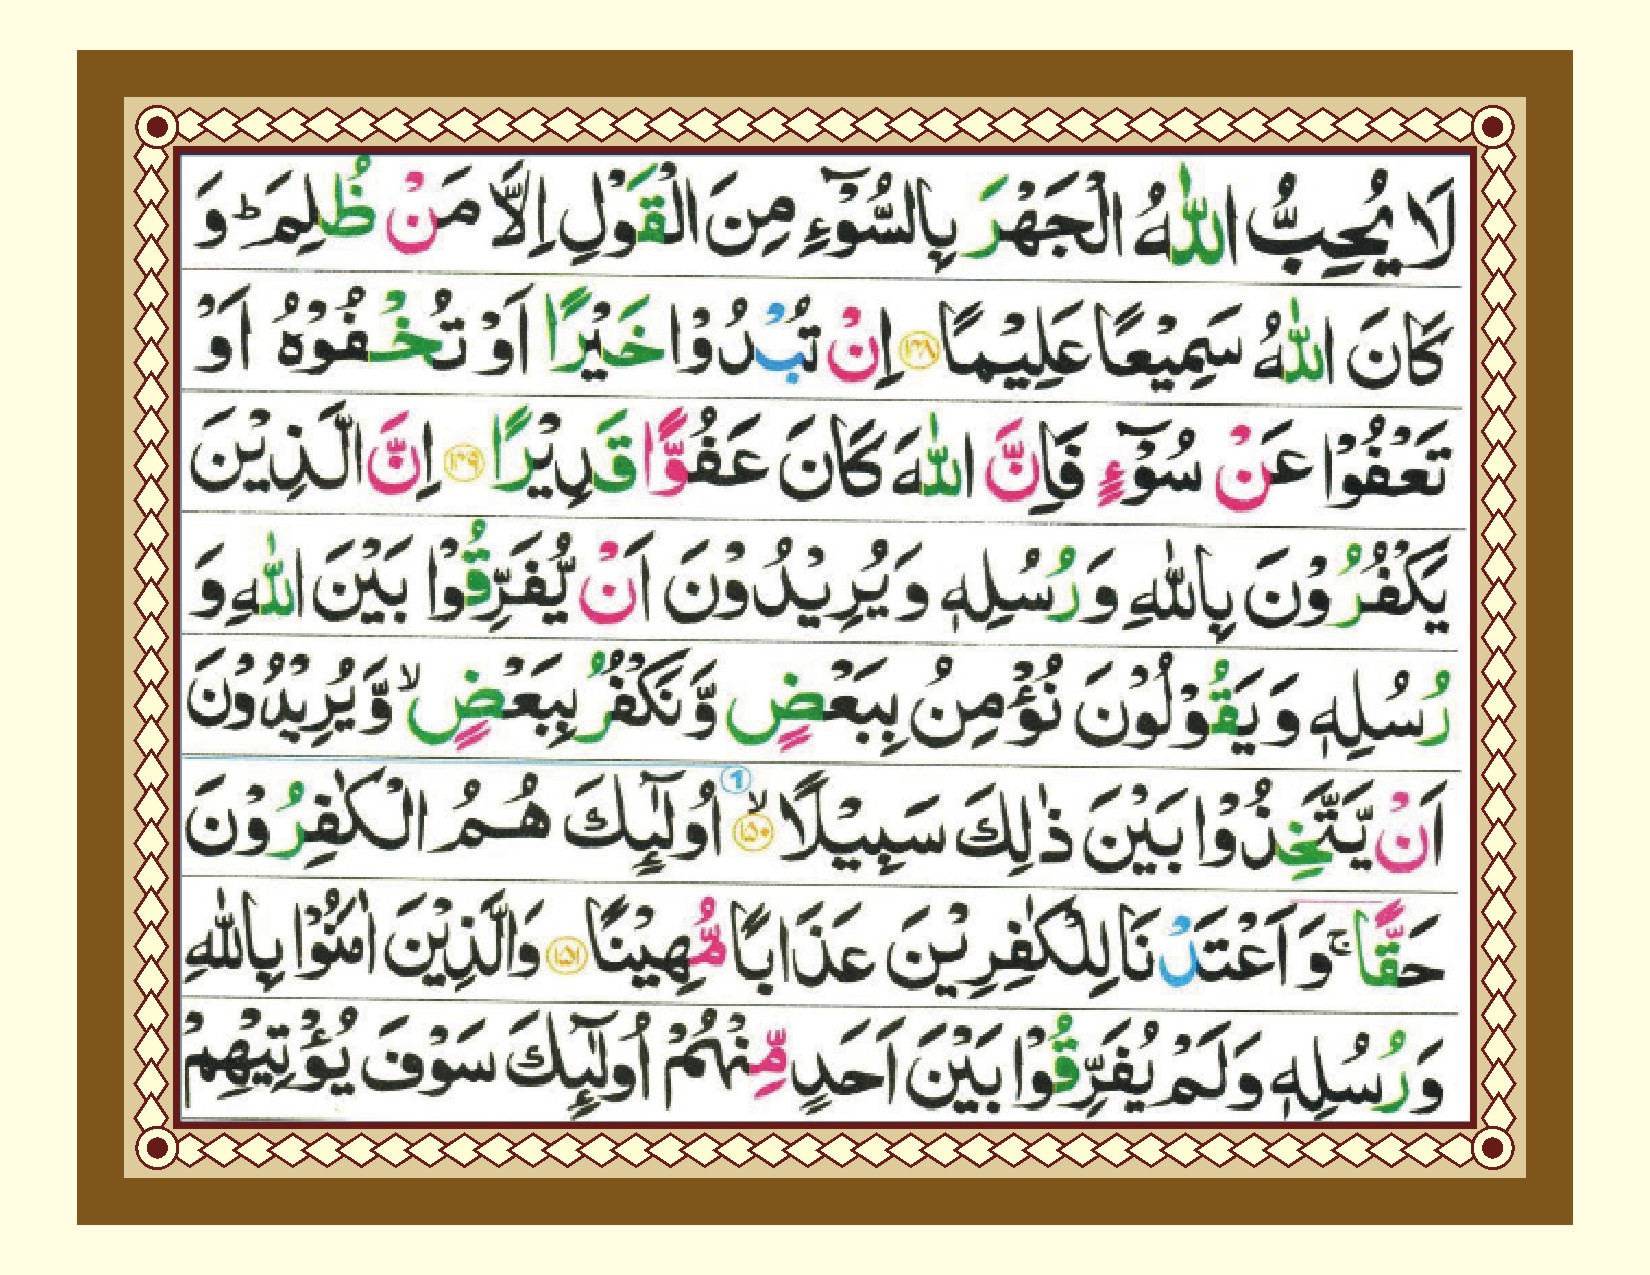 لَا يُحِبُّ اللّٰهُ الْجَهْرَ بِالسُّوْٓءِ مِنَ الْقَوْلِ اِلَّا مَنْ ظُلِمَ ؕ وَ
كَانَ اللّٰهُ سَمِيْعًا عَلِيْمًا ۝۱۴۸ اِنْ تُبْدُوْا خَيْرًا اَوْ تُخْفُوْهُ اَوْ
تَعْفُوْا عَنْ سُوْٓءٍ فَاِنَّ اللّٰهَ كَانَ عَفُوًّا قَدِيْرًا ۝۱۴۹ اِنَّ الَّذِيْنَ
يَكْفُرُوْنَ بِاللّٰهِ وَرُسُلِهٖ وَيُرِيْدُوْنَ اَنْ يُّفَرِّقُوْا بَيْنَ اللّٰهِ وَ
رُسُلِهٖ وَيَقُوْلُوْنَ نُؤْمِنُ بِبَعْضٍ وَّنَكْفُرُ بِبَعْضٍ ۙ وَّيُرِيْدُوْنَ
اَنْ يَّتَّخِذُوْا بَيْنَ ذٰلِكَ سَبِيْلًا ۙ۝۱۵۰ ① اُولٰٓئِكَ هُمُ الْكٰفِرُوْنَ
حَقًّا ۚ وَاَعْتَدْنَا لِلْكٰفِرِيْنَ عَذَابًا مُّهِيْنًا ۝۱۵۱ وَالَّذِيْنَ اٰمَنُوْا بِاللّٰهِ
وَرُسُلِهٖ وَلَمْ يُفَرِّقُوْا بَيْنَ اَحَدٍ مِّنْهُمْ اُولٰٓئِكَ سَوْفَ يُؤْتِيْهِمْ